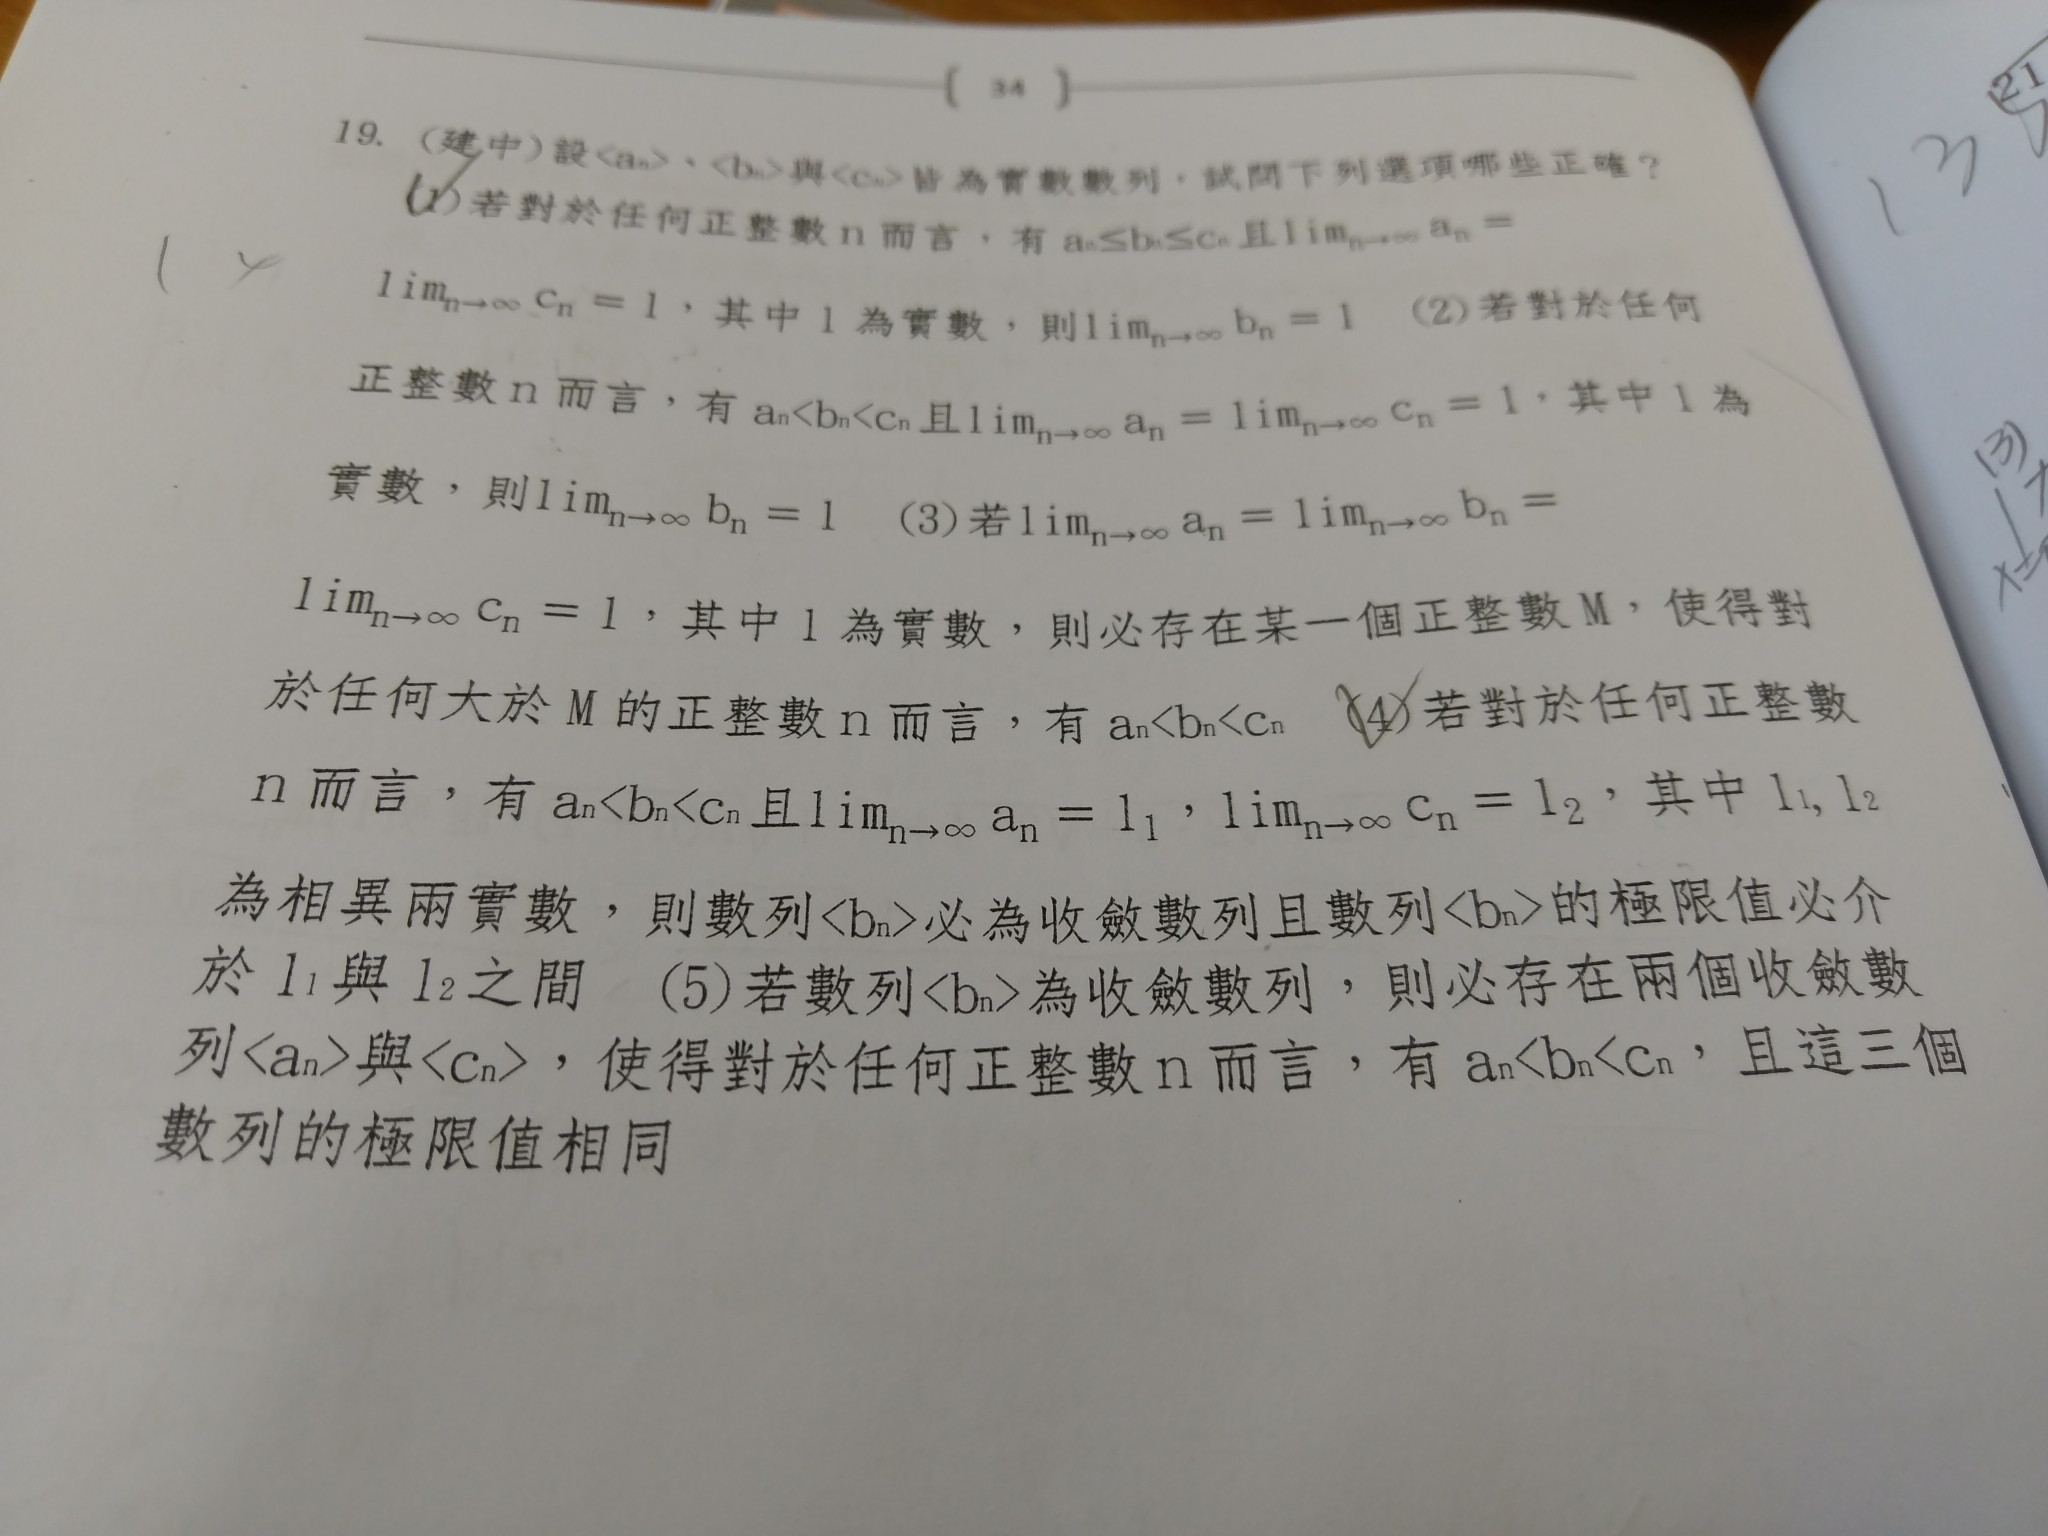 34
19. (建中)設<an>、<bn>與<cn>皆為實數數列，試問下列選項哪些正確？
(1)若對於任何正整數n而言，有an≤bn≤cn且lim_{n→∞} a_n =
lim_{n→∞} c_n = l，其中l為實數，則lim_{n→∞} b_n = l (2)若對於任何
正整數n而言，有an<bn<cn且lim_{n→∞} a_n = lim_{n→∞} c_n = l，其中l為
實數，則lim_{n→∞} b_n = l (3)若lim_{n→∞} a_n = lim_{n→∞} b_n =
lim_{n→∞} c_n = l，其中l為實數，則必存在某一個正整數M，使得對
於任何大於M的正整數n而言，有an<bn<cn (4)若對於任何正整數
n而言，有an<bn<cn且lim_{n→∞} a_n = l_1，lim_{n→∞} c_n = l_2，其中l1, l2
為相異兩實數，則數列<bn>必為收斂數列且數列<bn>的極限值必介
於l1與l2之間 (5)若數列<bn>為收斂數列，則必存在兩個收斂數
列<an>與<cn>，使得對於任何正整數n而言，有an<bn<cn，且這三個
數列的極限值相同
1 4
13
21
(3)